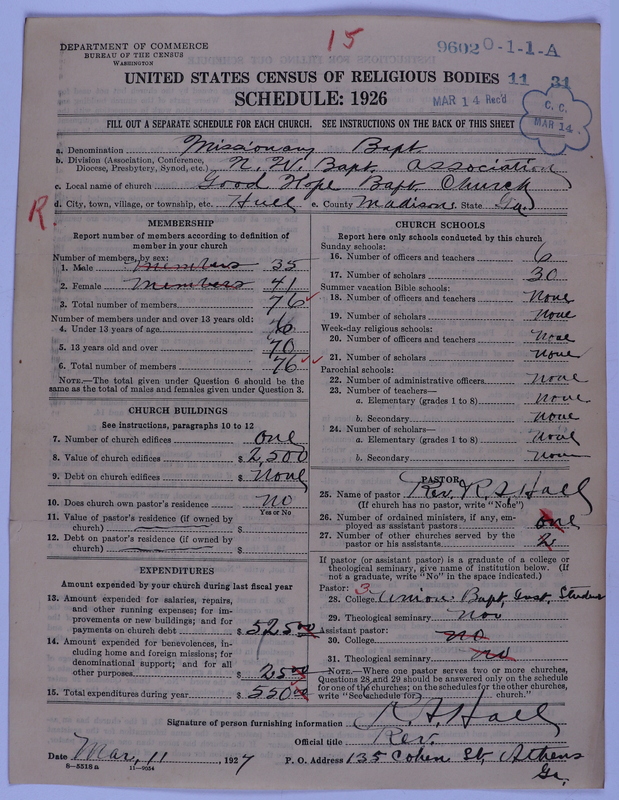 15
9602 0-1-1-A
DEPARTMENT OF COMMERCE
BUREAU OF THE CENSUS
WASHINGTON
UNITED STATES CENSUS OF RELIGIOUS BODIES 11 31
SCHEDULE: 1926
MAR 14 Rec'd
C. C.
MAR 14
FILL OUT A SEPARATE SCHEDULE FOR EACH CHURCH. SEE INSTRUCTIONS ON THE BACK OF THIS SHEET
a. Denomination Missionary Bapt.
b. Division (Association, Conference, Diocese, Presbytery, Synod, etc.) N. W. Bapt. Association
c. Local name of church Good Hope Bapt. Church
d. City, town, village, or township, etc. Hull e. County Madison s. State Ga.
R.
MEMBERSHIP
Report number of members according to definition of
member in your church
Number of members, by sex:
1. Male Members 35
2. Female Members 41
3. Total number of members 76
Number of members under and over 13 years old:
4. Under 13 years of age 6
5. 13 years old and over 70
6. Total number of members 76
NOTE.—The total given under Question 6 should be the
same as the total of males and females given under Question 3.
CHURCH BUILDINGS
See instructions, paragraphs 10 to 12
7. Number of church edifices one
8. Value of church edifices $ 2,500
9. Debt on church edifices $ None
10. Does church own pastor's residence no
Yes or No
11. Value of pastor's residence (if owned by
church) $
12. Debt on pastor's residence (if owned by
church) $
EXPENDITURES
Amount expended by your church during last fiscal year
13. Amount expended for salaries, repairs,
and other running expenses; for im-
provements or new buildings; and for
payments on church debt $ 525 00
14. Amount expended for benevolences, in-
cluding home and foreign missions; for
denominational support; and for all
other purposes $ 25 00
15. Total expenditures during year $ 550 00
CHURCH SCHOOLS
Report here only schools conducted by this church
Sunday schools:
16. Number of officers and teachers 6
17. Number of scholars 30
Summer vacation Bible schools:
18. Number of officers and teachers none
19. Number of scholars none
Week-day religious schools:
20. Number of officers and teachers none
21. Number of scholars none
Parochial schools:
22. Number of administrative officers none
23. Number of teachers—
a. Elementary (grades 1 to 8) none
b. Secondary none
24. Number of scholars—
a. Elementary (grades 1 to 8) none
b. Secondary none
PASTOR
25. Name of pastor Rev. R. A. Hall
(If church has no pastor, write "None")
26. Number of ordained ministers, if any, em-
ployed as assistant pastors one
27. Number of other churches served by the
pastor or his assistants 2
If pastor (or assistant pastor) is a graduate of a college or
theological seminary, give name of institution below. (If
not a graduate, write "No" in the space indicated.)
Pastor: 3
28. College Union Bapt. Inst. Student
29. Theological seminary
Assistant pastor:
30. College no
31. Theological seminary no
NOTE.—Where one pastor serves two or more churches,
Questions 28 and 29 should be answered only on the schedule
for one of the churches; on the schedules for the other churches,
write "See schedule for church."
Signature of person furnishing information R. A. Hall
Official title Rev.
Date Mar, 11, 1927 P. O. Address 135 Cohen St, Athens
Ga.
8-5518 a 11-9054